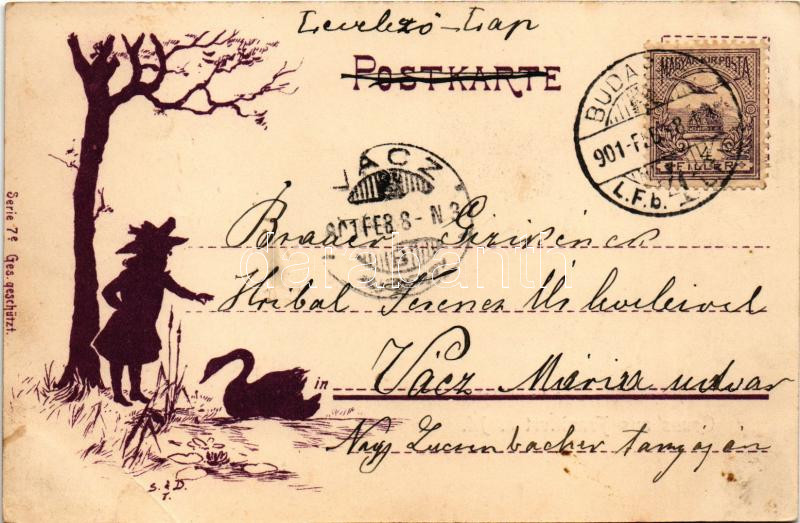 Levelező-Lap
POSTKARTE
MAGYAR KIR. POSTA
4
FILLÉR
BUDAPEST
901-FEB
L.F.b.
VÁCZ
901 FEB 8-N3
Serie 7e Ges. geschützt.
Hribal Ferencz Úr leveleivel
in Vácz Mária udvar
Nagy Lucenbacher tanyáján
S. & D.
darabanth